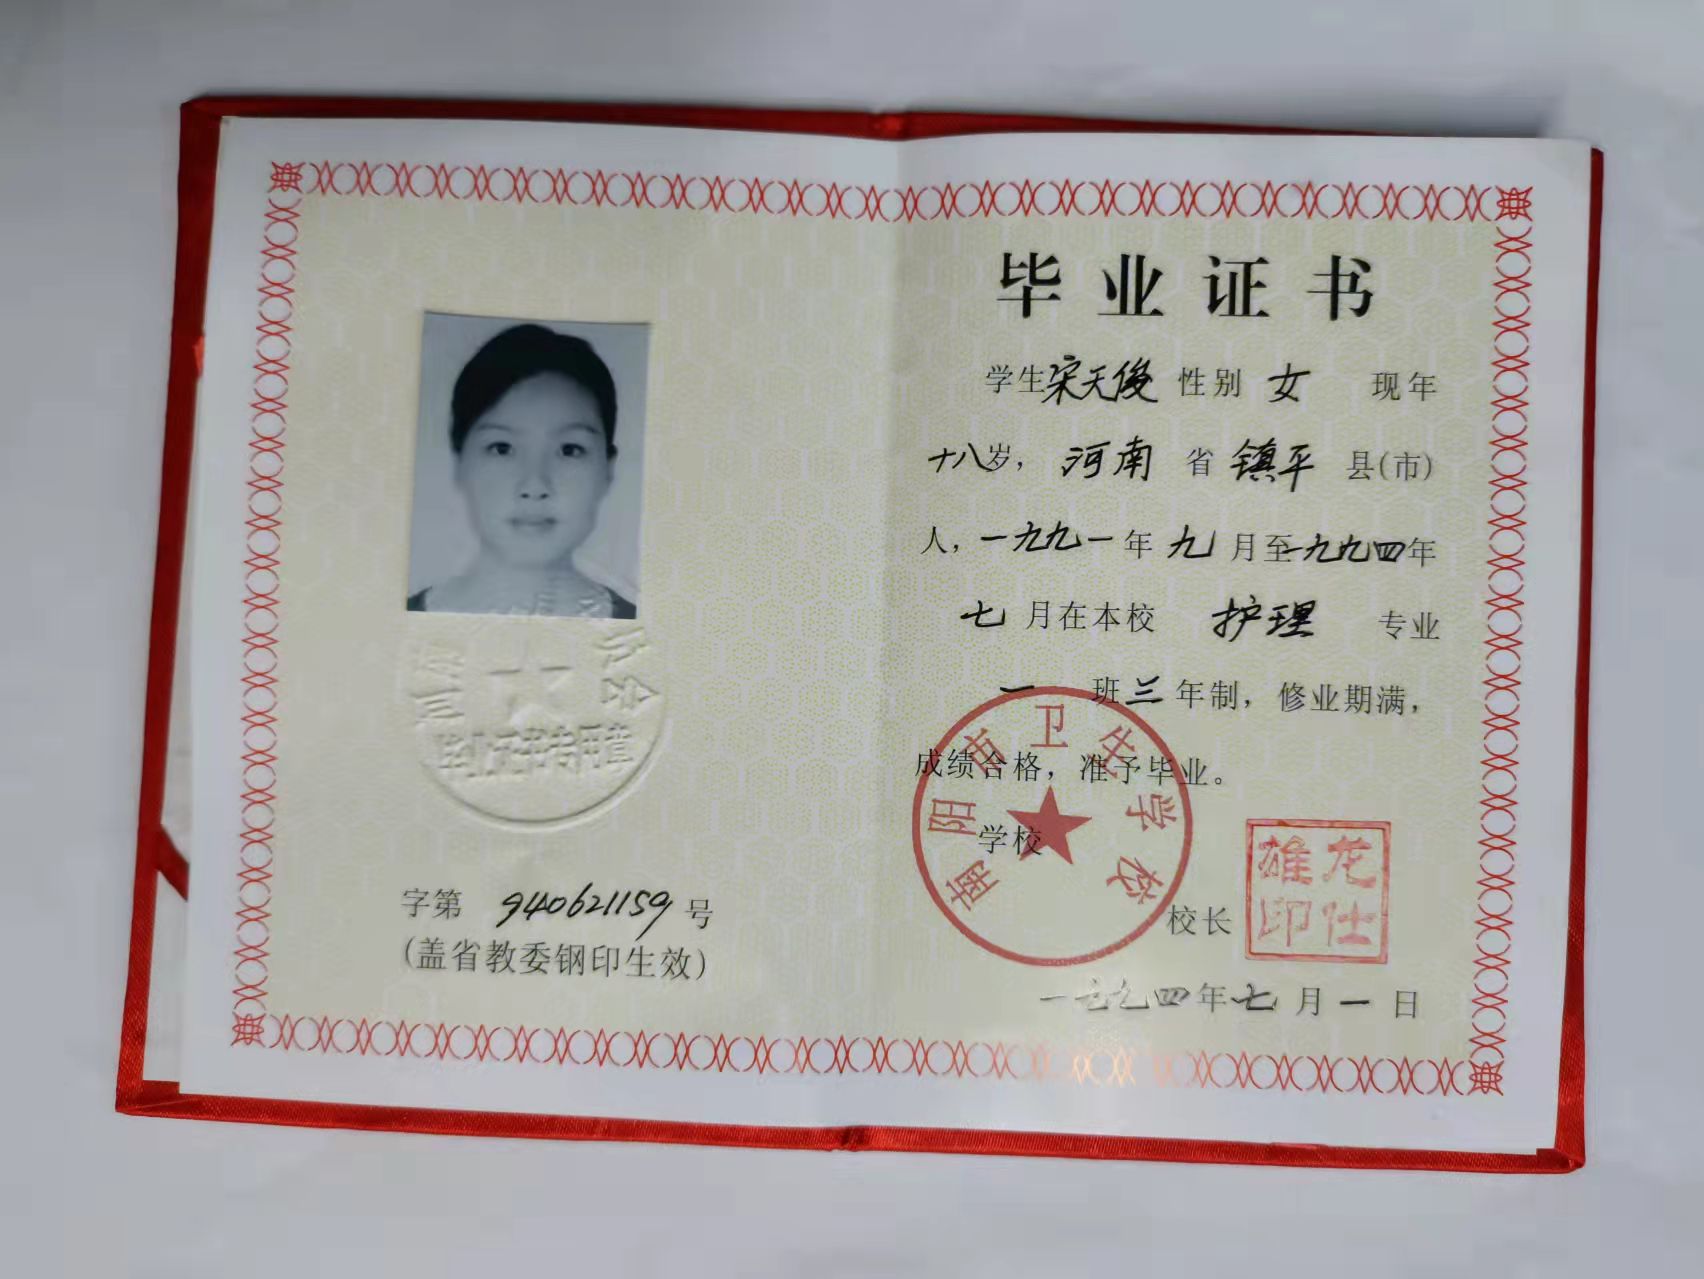 毕业证书
学生宋天俊 性别 女 现年
十八岁，河南 省 镇平 县(市)
人，一九九一年 九 月至一九九四年
七 月在本校 护理 专业
一 班三年制，修业期满，
成绩合格，准予毕业。
学校
南阳市卫生学校
校长
龙仕雄印
一九九四年七月一日
毕业证书专用章
字第 940621159 号
(盖省教委钢印生效)